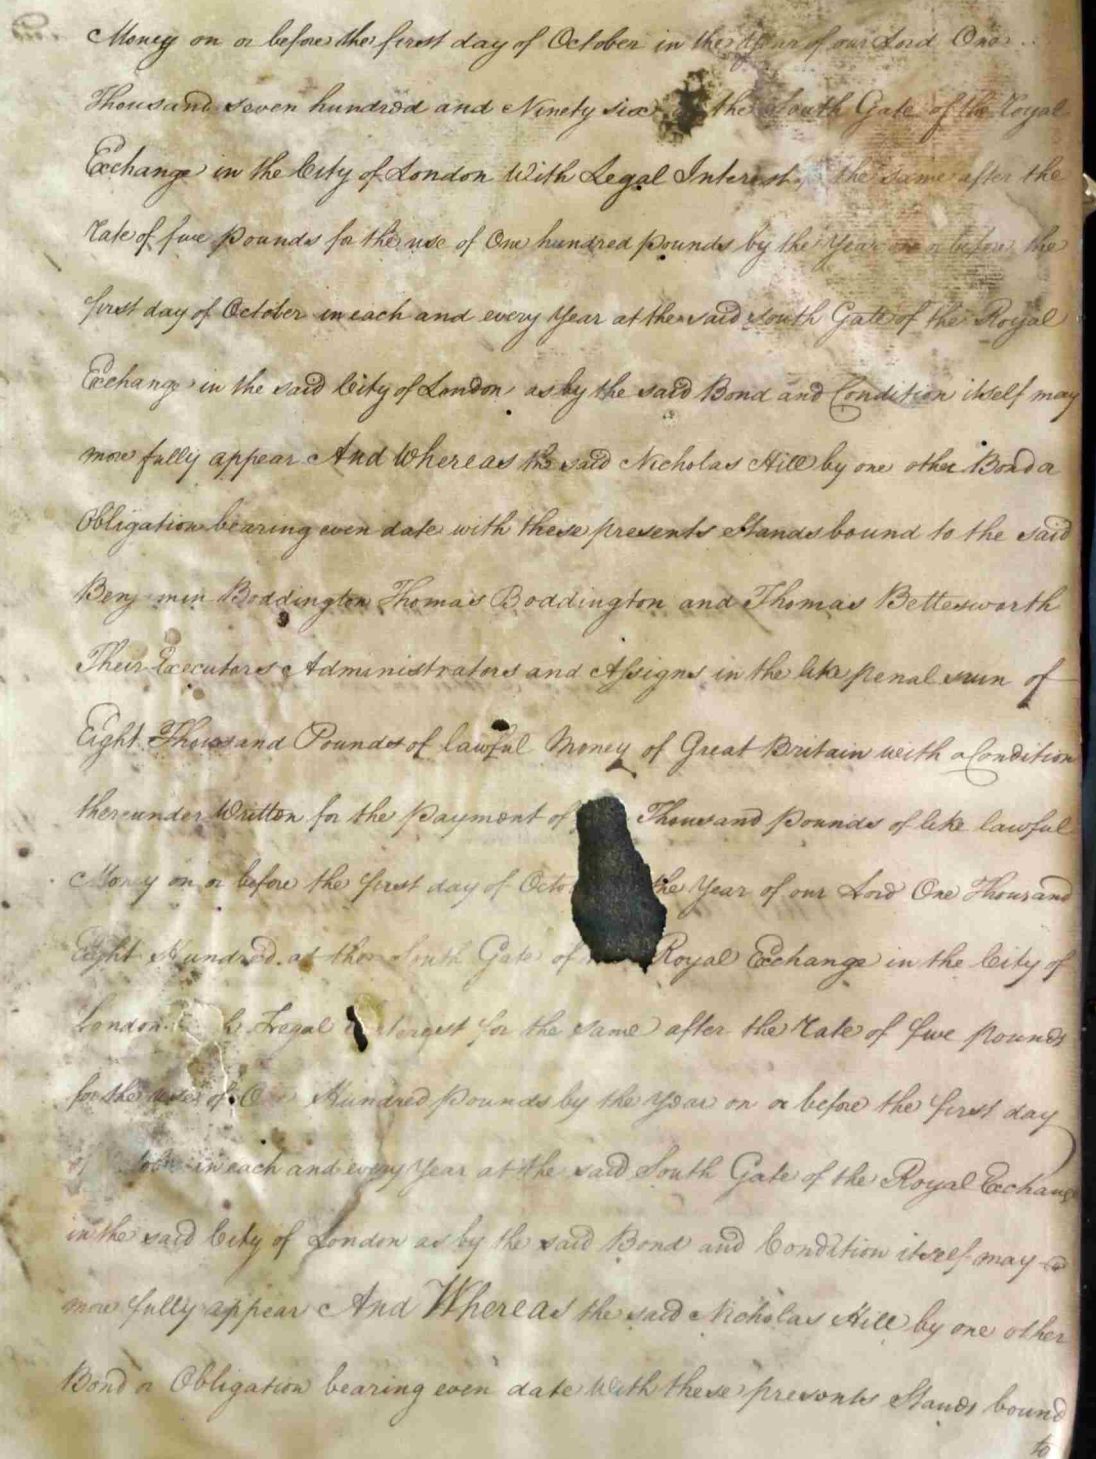 Money on or before the first day of October in the Year of our Lord One
Thousand seven hundred and Ninety six the South Gate of the Royal
Exchange in the City of London With Legal Interest the same after the
Rate of five pounds for the use of One hundred pounds by the Year on or before the
first day of October in each and every Year at the said South Gate of the Royal
Exchange in the said City of London as by the said Bond and Condition itself may
more fully appear And Whereas the said Nicholas Hill by one other Bond or
Obligation bearing even date with these presents Stands bound to the said
Benj min Boddington Thomas Boddington and Thomas Bettesworth
Their Executors Administrators and Assigns in the like penal sum of
Eight Thousand Pounds of lawful Money of Great Britain with a Condition
thereunder Written for the payment of Thousand pounds of like lawful
Money on or before the first day of Octo the Year of our Lord One Thousand
Eight Hundred at the South Gate of Royal Exchange in the City of
London h Legal terest for the same after the Rate of five pounds
for the use of O Hundred pounds by the Year on or before the first day
of tob in each and every Year at the said South Gate of the Royal Exchange
in the said City of London as by the said Bond and Condition itself may
more fully appear And Whereas the said Nicholas Hill by one other
Bond or Obligation bearing even date With these presents Stands bound
to